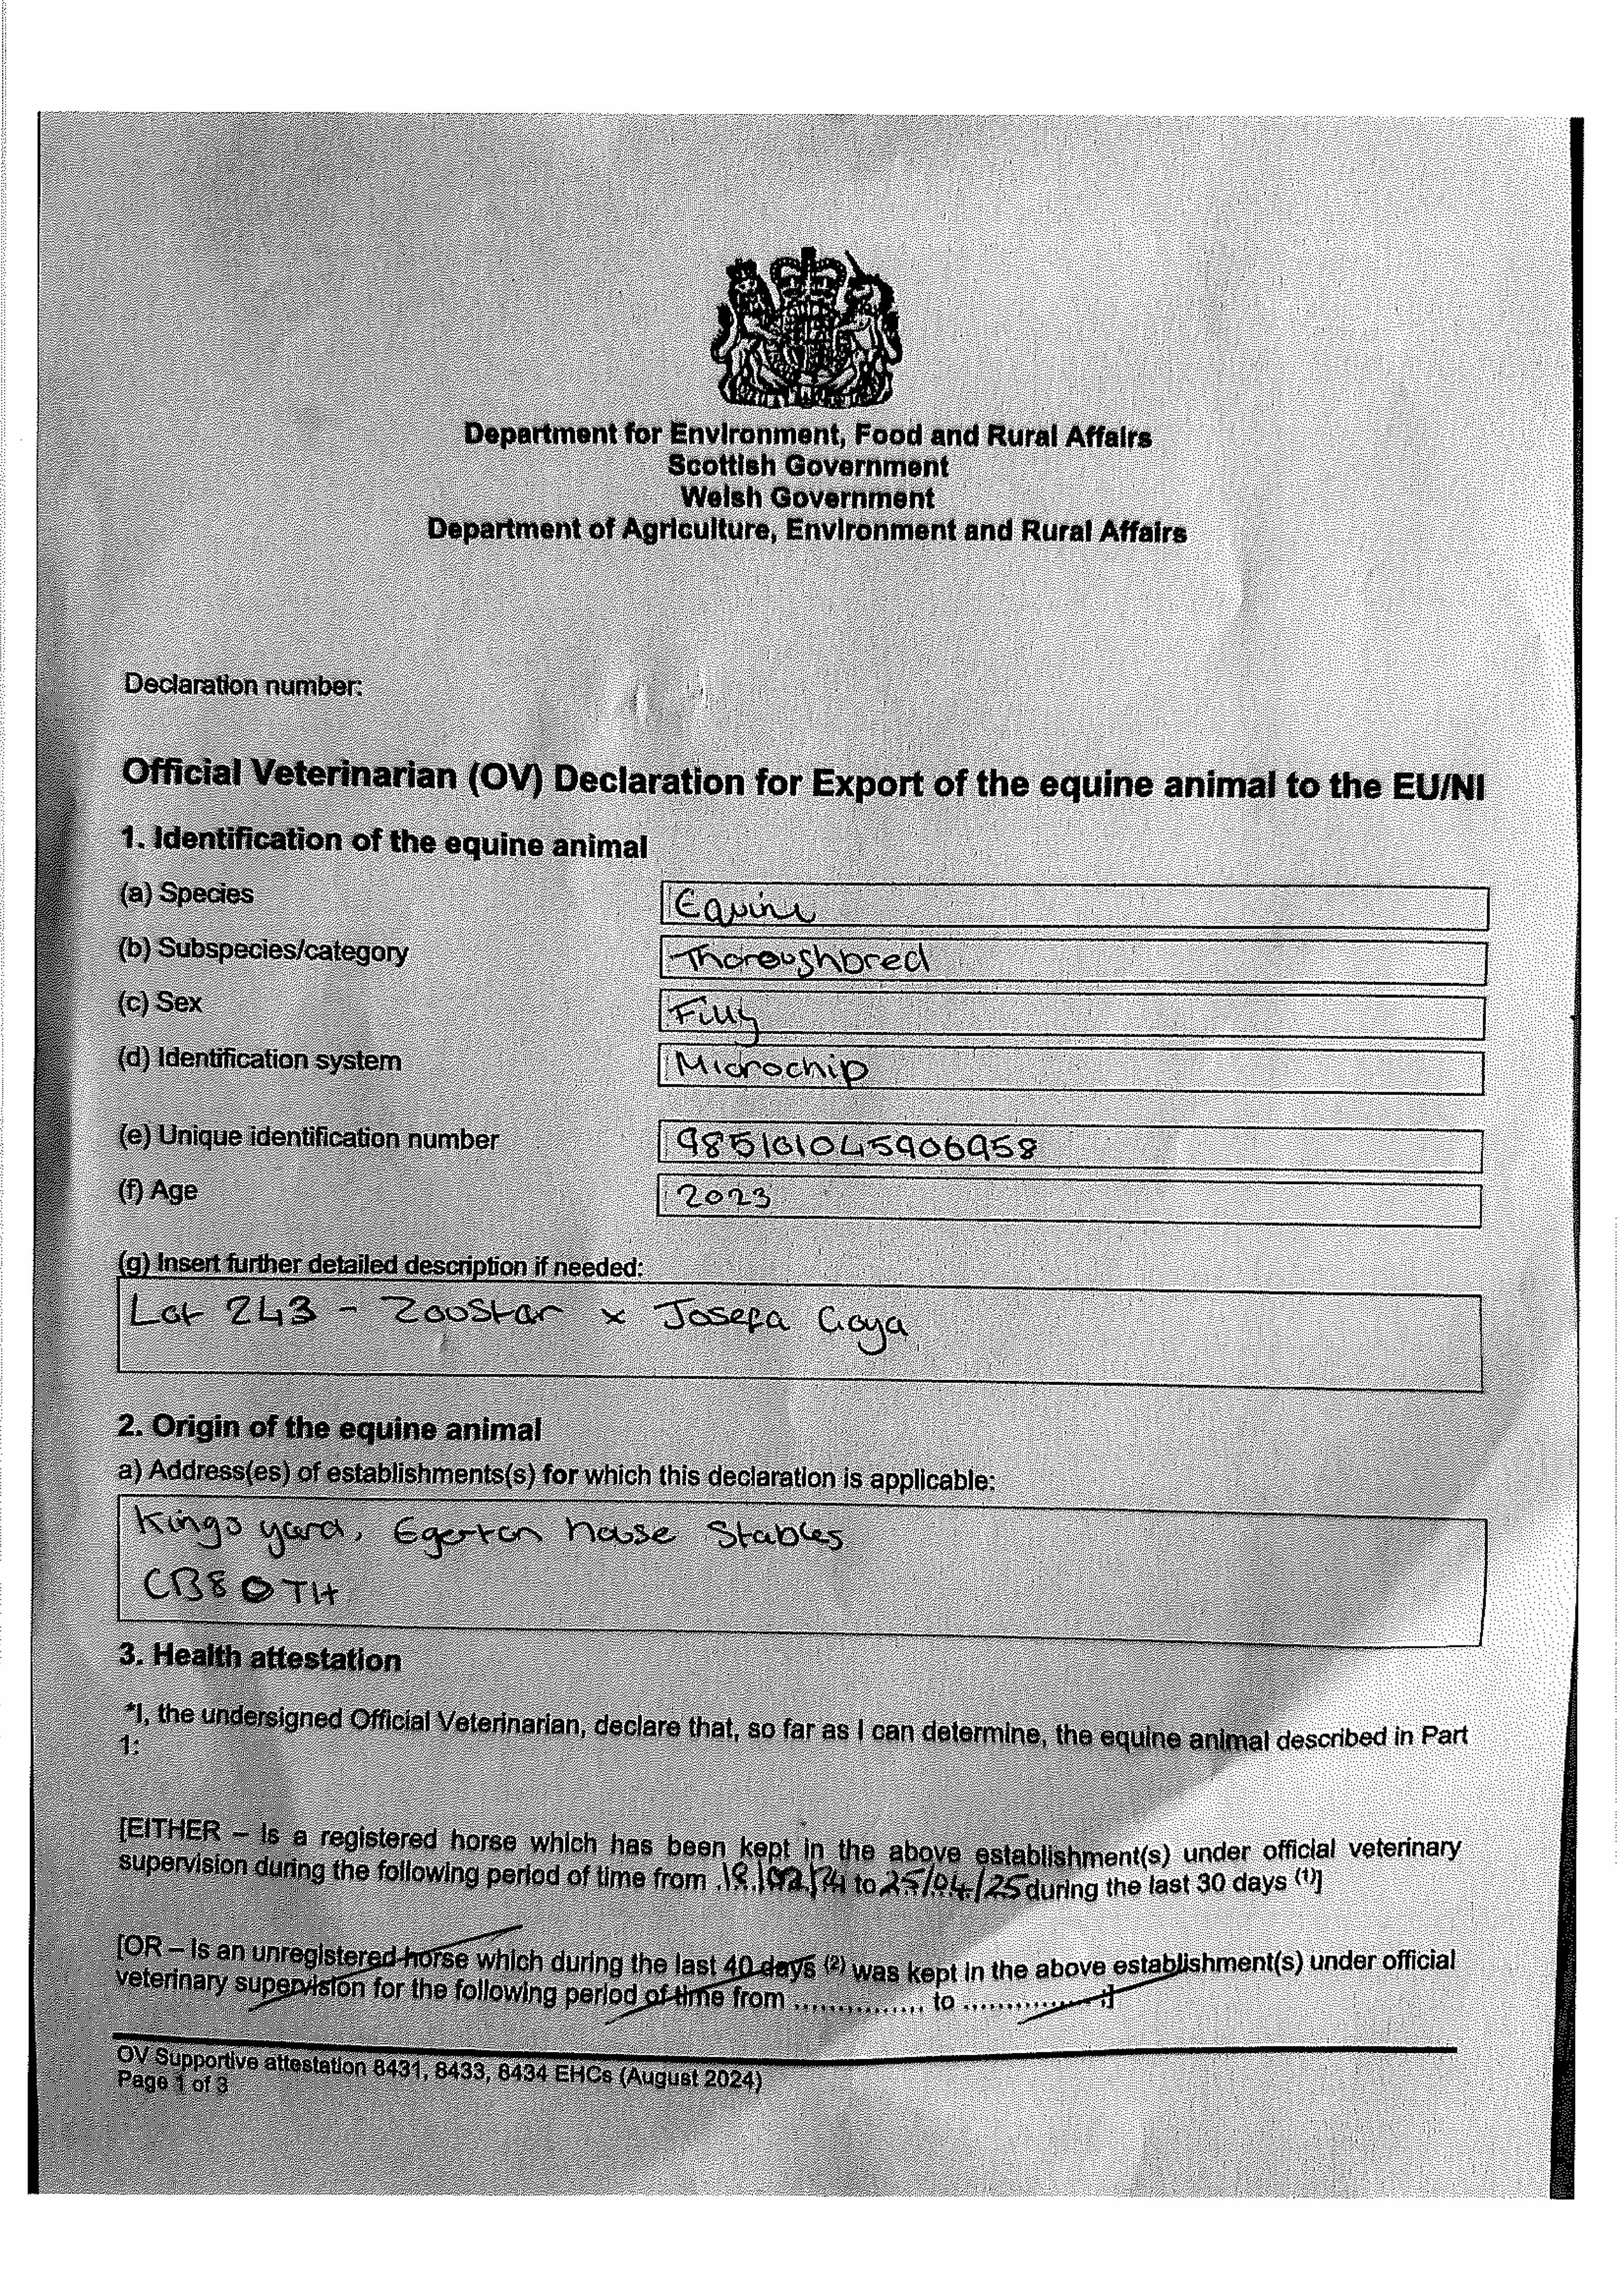 Department for Environment, Food and Rural Affairs
Scottish Government
Welsh Government
Department of Agriculture, Environment and Rural Affairs
Declaration number:
Official Veterinarian (OV) Declaration for Export of the equine animal to the EU/NI
1. Identification of the equine animal
(a) Species Equine
(b) Subspecies/category Thoroughbred
(c) Sex Filly
(d) Identification system Microchip
(e) Unique identification number 985101045906958
(f) Age 2023
(g) Insert further detailed description if needed:
Lot 243 - Zoustar x Josefa Goya
2. Origin of the equine animal
a) Address(es) of establishments(s) for which this declaration is applicable:
Kings yard, Egerton house Stables
CB8 0TH
3. Health attestation
*I, the undersigned Official Veterinarian, declare that, so far as I can determine, the equine animal described in Part
1:
[EITHER – Is a registered horse which has been kept in the above establishment(s) under official veterinary
supervision during the following period of time from to 25/04/25 during the last 30 days (1)]
[OR – Is an unregistered horse which during the last 40 days (2) was kept in the above establishment(s) under official
veterinary supervision for the following period of time from ............... to ............... ;]
OV Supportive attestation 8431, 8433, 8434 EHCs (August 2024)
Page 1 of 3